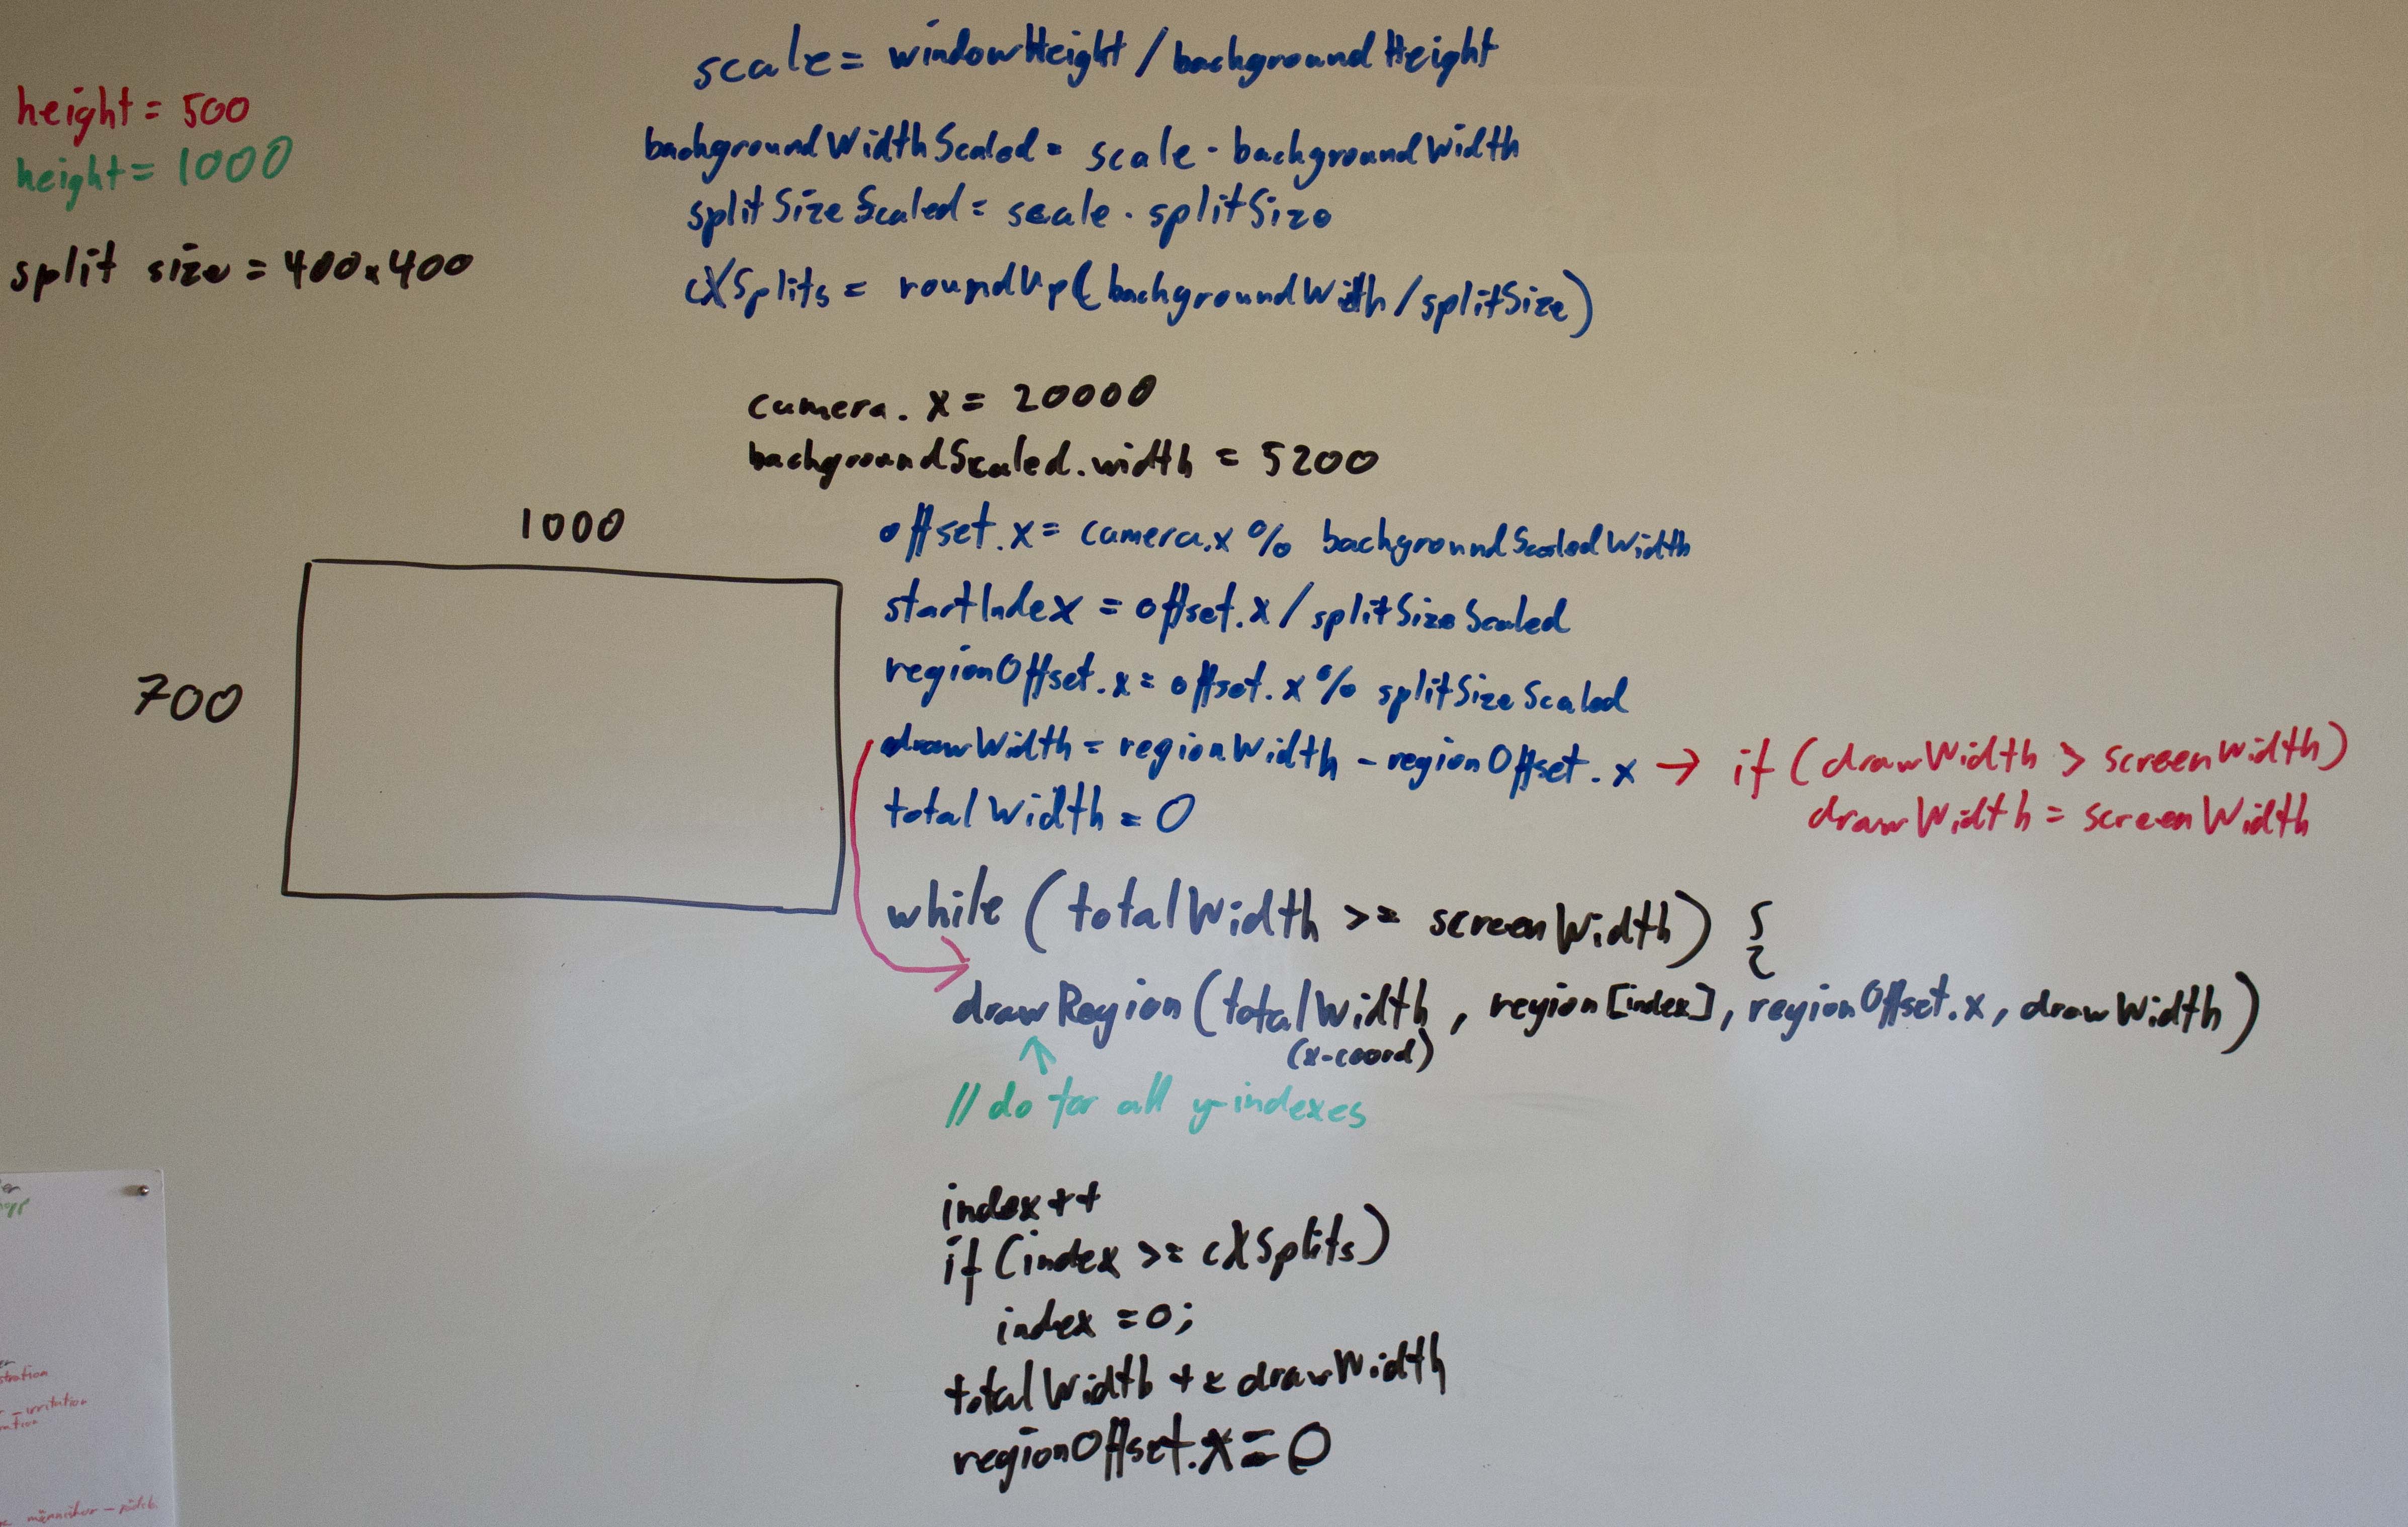 scale = windowHeight / backgroundHeight
height = 500
height = 1000
backgroundWidthScaled = scale · backgroundWidth
splitSizeScaled = scale · splitSize
split size = 400x400
cXSplits = roundUp(backgroundWidth/splitSize)
camera.x = 20000
backgroundScaled.width = 5200
1000
700
offset.x = camera.x % backgroundScaledWidth
startIndex = offset.x / splitSizeScaled
regionOffset.x = offset.x % splitSizeScaled
drawWidth = regionWidth - regionOffset.x → if (drawWidth > screenWidth)
drawWidth = screenWidth
totalWidth = 0
while (totalWidth >= screenWidth) {
drawRegion (totalWidth, region[index], regionOffset.x, drawWidth)
(x-coord)
// do for all y-indexes
index++
if (index >= cXSplits)
index = 0;
totalWidth += drawWidth
regionOffset.x = 0
- irritation
människor -